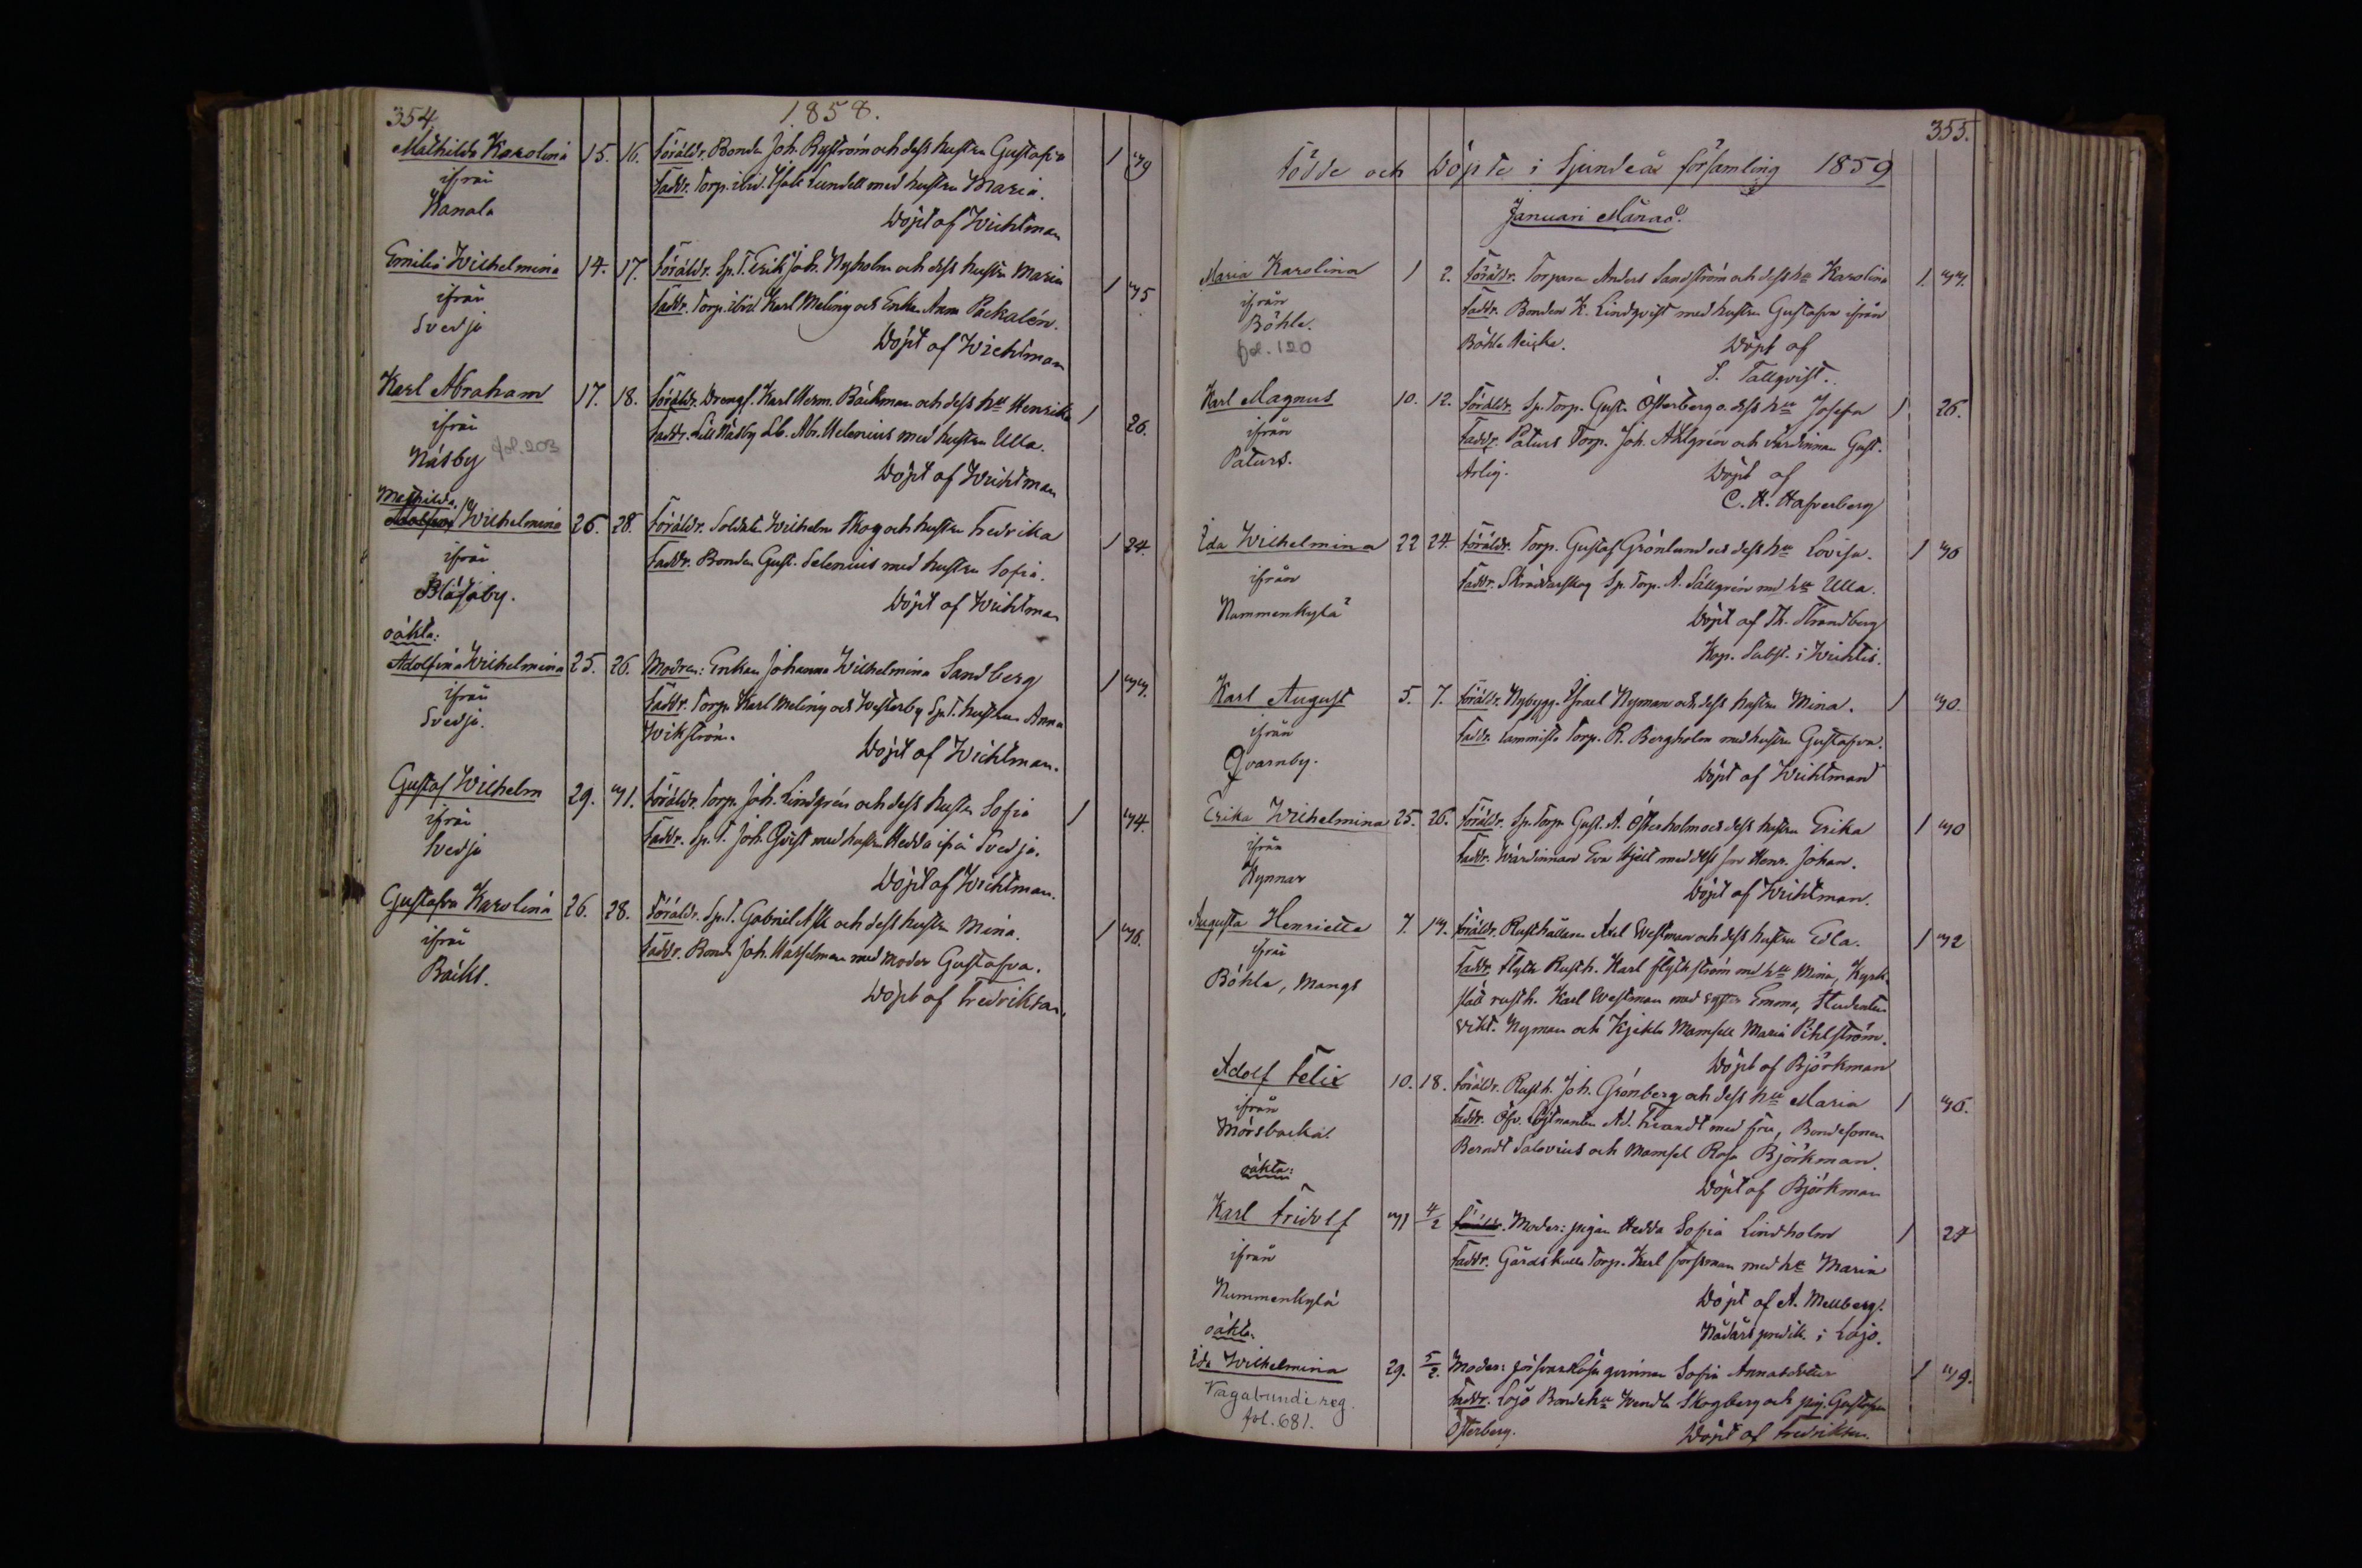 354.
1858.
Mathilda Karolina 15. 16. Föräldr. Bonden Joh. Byström och dess hustru Gustafva 1 39
ifrån Faddr. Torp. ibid. Isak Lundell med hustru Maria.
Kanala
Döpt af Wichtman
Emilia Wilhelmina 14. 17. Föräldr. Sp. T. Erik Joh. Nyholm och dess hustru Maria 1 35
ifrån Faddr. Torp. ibid. Karl Meling och Enkan Anna Packalén.
Svedja
Döpt af Wichtman
Karl Abraham 17. 18. Föräldr. Drengs. Karl Herm. Bäckman och dess hu Henrika 1 26.
ifrån Faddr. Lill Näsby Lb. Abr. Helenius med hustru Ulla.
Näsby fol. 203
Döpt af Wichtman
Mathilda
Adolfina Wilhelmina 26. 28. Föräldr. Soldaten Wilhelm Skog och hustru Fredrika 1 24
ifrån Faddr. Bonden Gust. Selenius med hustru Sofia.
Blåsaby.
Döpt af Wichtman
oäkta:
Adolfina Wilhelmina 25. 26. Modren: Enkan Johanna Wilhelmina Sandberg 1 33.
ifrån Faddr. Torp. Karl Meling och Westerby Sp. T. hustru Anna
Svedja. Wikström.
Döpt af Wichtman.
Gustaf Wilhelm 29. 31. Föräldr. Torp. Joh. Lindgrén och dess hustru Sofia 1 34.
ifrån Faddr. Sp. T. Joh. Qvist med hustru Hedda ifrån Svedja.
Svedja
Döpt af Wichtman.
Gustafva Karolina 26. 28. Föräldr. Sp. T. Gabriel Alk och dess hustru Mina. 1 36.
ifrån Faddr. Bond. Joh. Hasselman med moder Gustafva.
Bäcks.
Döpt af Fredrikson.
355.
Födde och Döpte i Sjundeå församling 1859
Januari Månad.
Maria Karolina 1 2. Föräldr. Torparen Anders Sandström och dess hu Karolina 1. 33.
ifrån Faddr. Bonden K. Lindqvist med hustru Gustafva ifrån
Böhle. Böhle Reijke. Döpt af
fol. 120
S. Tallqvist.
Karl Magnus 10. 12. Föräldr. Sp. Torp. Gust. Österberg o. dess hu Josefa 1 26.
ifrån Faddr. Paturs Torp. Joh. Ahlgrén och värdinnan Gust.
Paturs. Arlig. Döpt af
C. H. Hafverberg
Ida Wilhelmina 22 24. Föräldr. Torp. Gustaf Grönlund och dess hu Lovisa. 1 36
ifrån Faddr. Skräddarskog Sp. Torp. A. Sällgrén md hu Ulla.
Nummenkylä
Döpt af Th. Strandberg
Kap. Subst. i Wichtis.
Karl August 5. 7. Föräldr. Nybygg. Israel Nyman och dess hustru Mina. 1 30.
ifrån Faddr. Tammisto Torp. R. Bergholm med hustru Gustafva.
Qvarnby.
Döpt af Wichtman
Erika Wilhelmina 25. 26. Föräldr. Sp. Torp. Gust. A. Österholm och dess hustru Erika 1 30
ifrån Faddr. Wärdinnan Eva Hjelt med dess son Henr. Johan.
Kynnar
Döpt af Wichtman.
Augusta Henrietta 7. 13. Föräldr. Rusthållaren Axel Westman och dess hustru Edla. 1 32
ifrån Faddr. Flyt Rusth. Karl Flythström md hu Mina, Kyrk-
Böhle, Mangs slätt rusth. Karl Westman med syster Emma, Studenten
Wikt. Nyman och Kjekla Mamsell Maria Pihlström.
Döpt af Björkman
Adolf Felix 10. 18. Föräldr. Rusth. Joh. Grönberg och dess hu Maria 1 36.
ifrån Faddr. Öfv. Löjtnanten Ad. Tirandt med fru, Bondesonen
Mörsbacka. Berndt Salovius och Mamsel Rosa Björkman.
Döpt af Björkman
oäkta:
Karl Fridolf 31 4/2 Föräldr. Moder: pigan Hedda Sofia Lindholm 1 24
ifrån Faddr. Gårdskulla Torp. Karl Forsman med hu Maria
Nummenkylä Döpt af A. Mellberg.
Nådårspredik. i Lojo.
oäkta.
Ida Wilhelmina 29. 5/2. Moder: försvarslösa qvinnan Sofia Annasdotter 1 39.
Vagabundi reg. Faddr. Lojo Bondehu Wendla Skogberg och pig. Gustafva
fol. 681. Österberg. Döpt af Fredrikson.